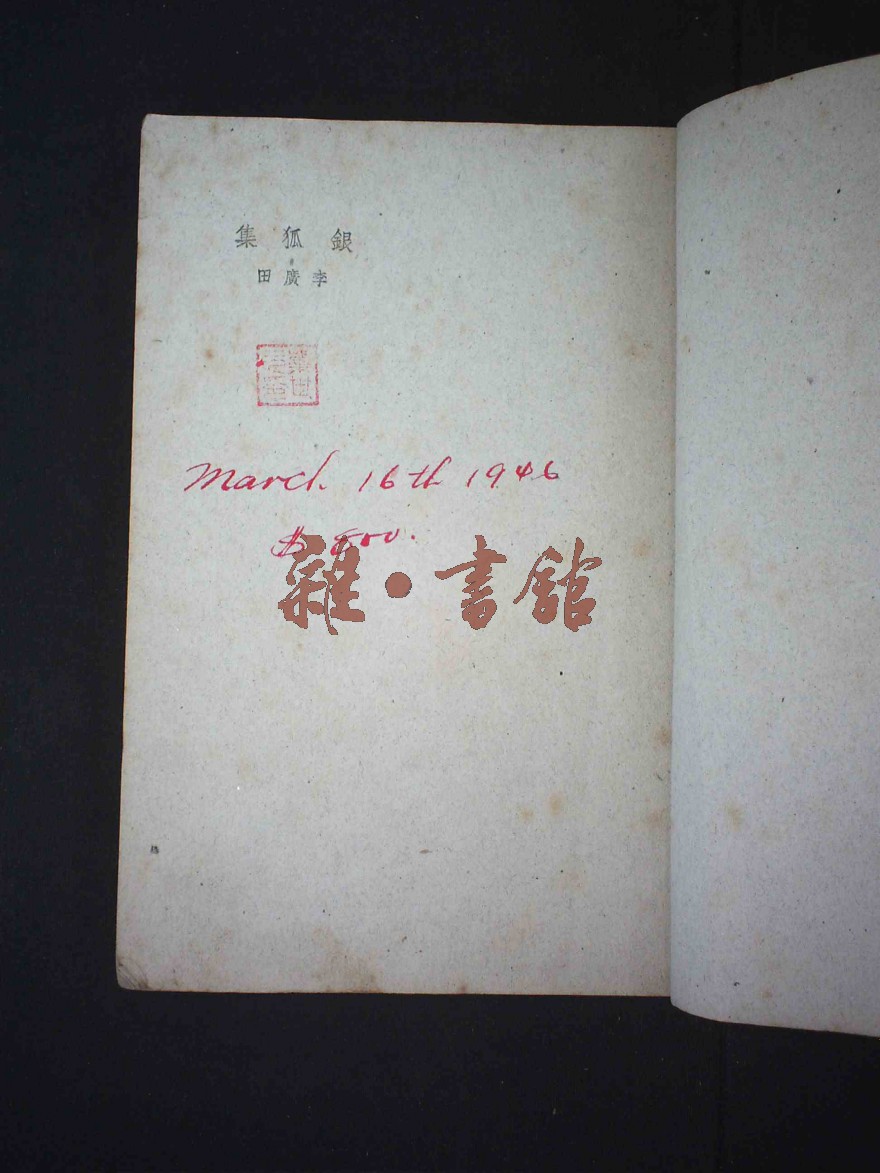 銀狐集
李廣田
March 16th 1946
$
雜·書館